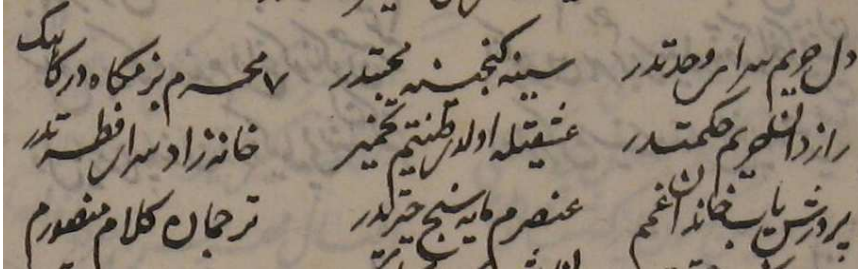 دل حریم سرای وحدتدر سینه گنجینه محبتدر محرم بزمگاه درگاهک
رازدان حریم حکمتدر عشقیله اولدی طینتم تخمیر خانه زاد سرای فطرتدر
پرورش یاب خاندان غمم عنصرم مایه سنج حیرتدر ترجمان کلام منصورم